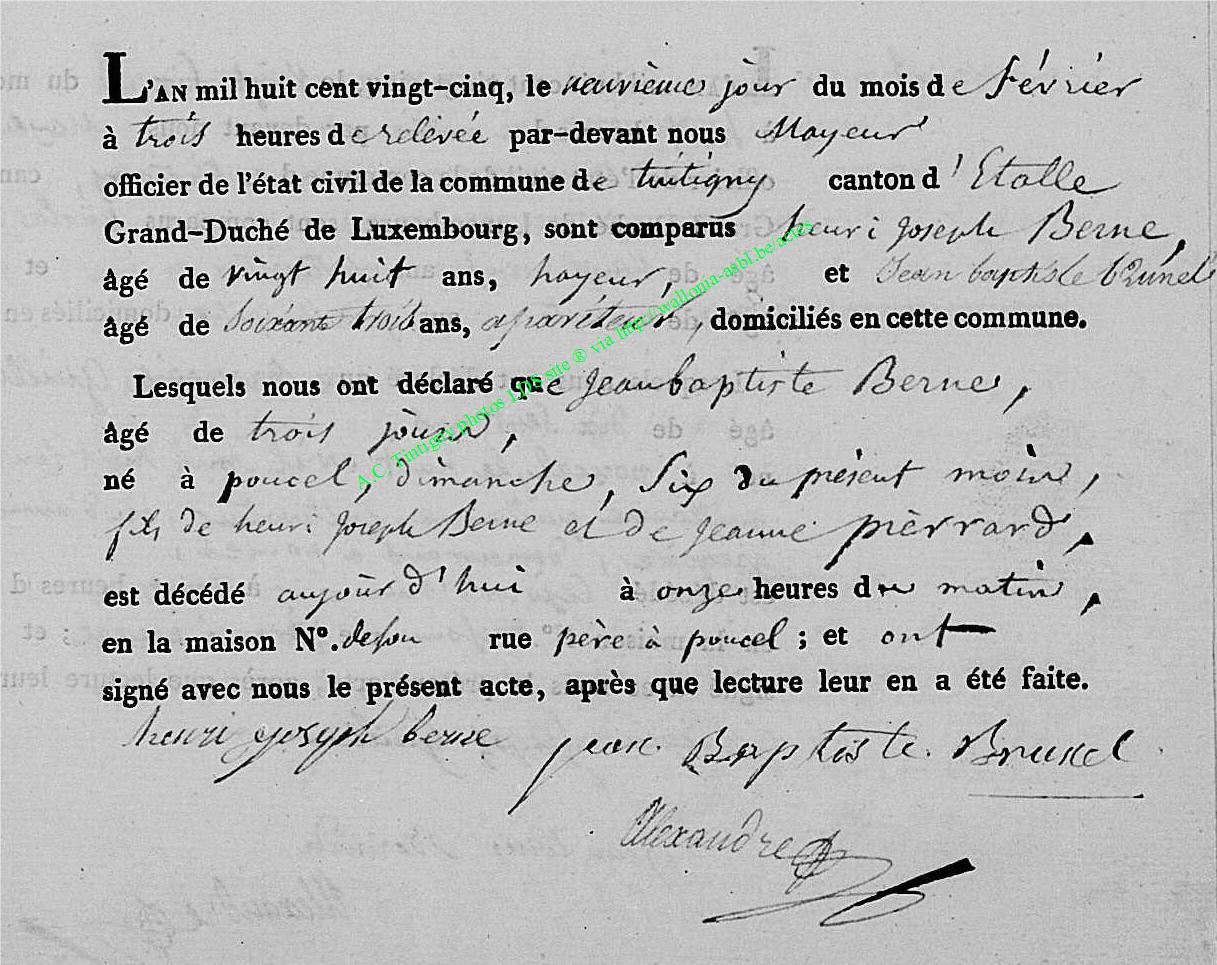 L'AN mil huit cent vingt-cinq, le neuvième jour du mois de Février
à trois heures de relévée par-devant nous Mayeur
officier de l'état civil de la commune de tintigny canton d'Etalle
Grand-Duché de Luxembourg, sont comparus henri joseph Berne,
âgé de vingt huit ans, et Jean baptiste Brunel
âgé de Soixante trois ans, apariteur, domiciliés en cette commune.
Lesquels nous ont déclaré que Jeanbaptiste Berne,
âgé de trois jours,
né à poucel, dimanche, Six du présent mois,
fils de henri Joseph Berne et de Jeanne pièrrard,
est décédé aujour d'hui à onze heures du matin,
en la maison N°. de son rue père à poucel ; et ont
signé avec nous le présent acte, après que lecture leur en a été faite.
henri joseph berne jean Baptiste Brunel
Alexandre
A.C. Tintigny photos LDS site ® via http://wallonia-asbl.be/actes